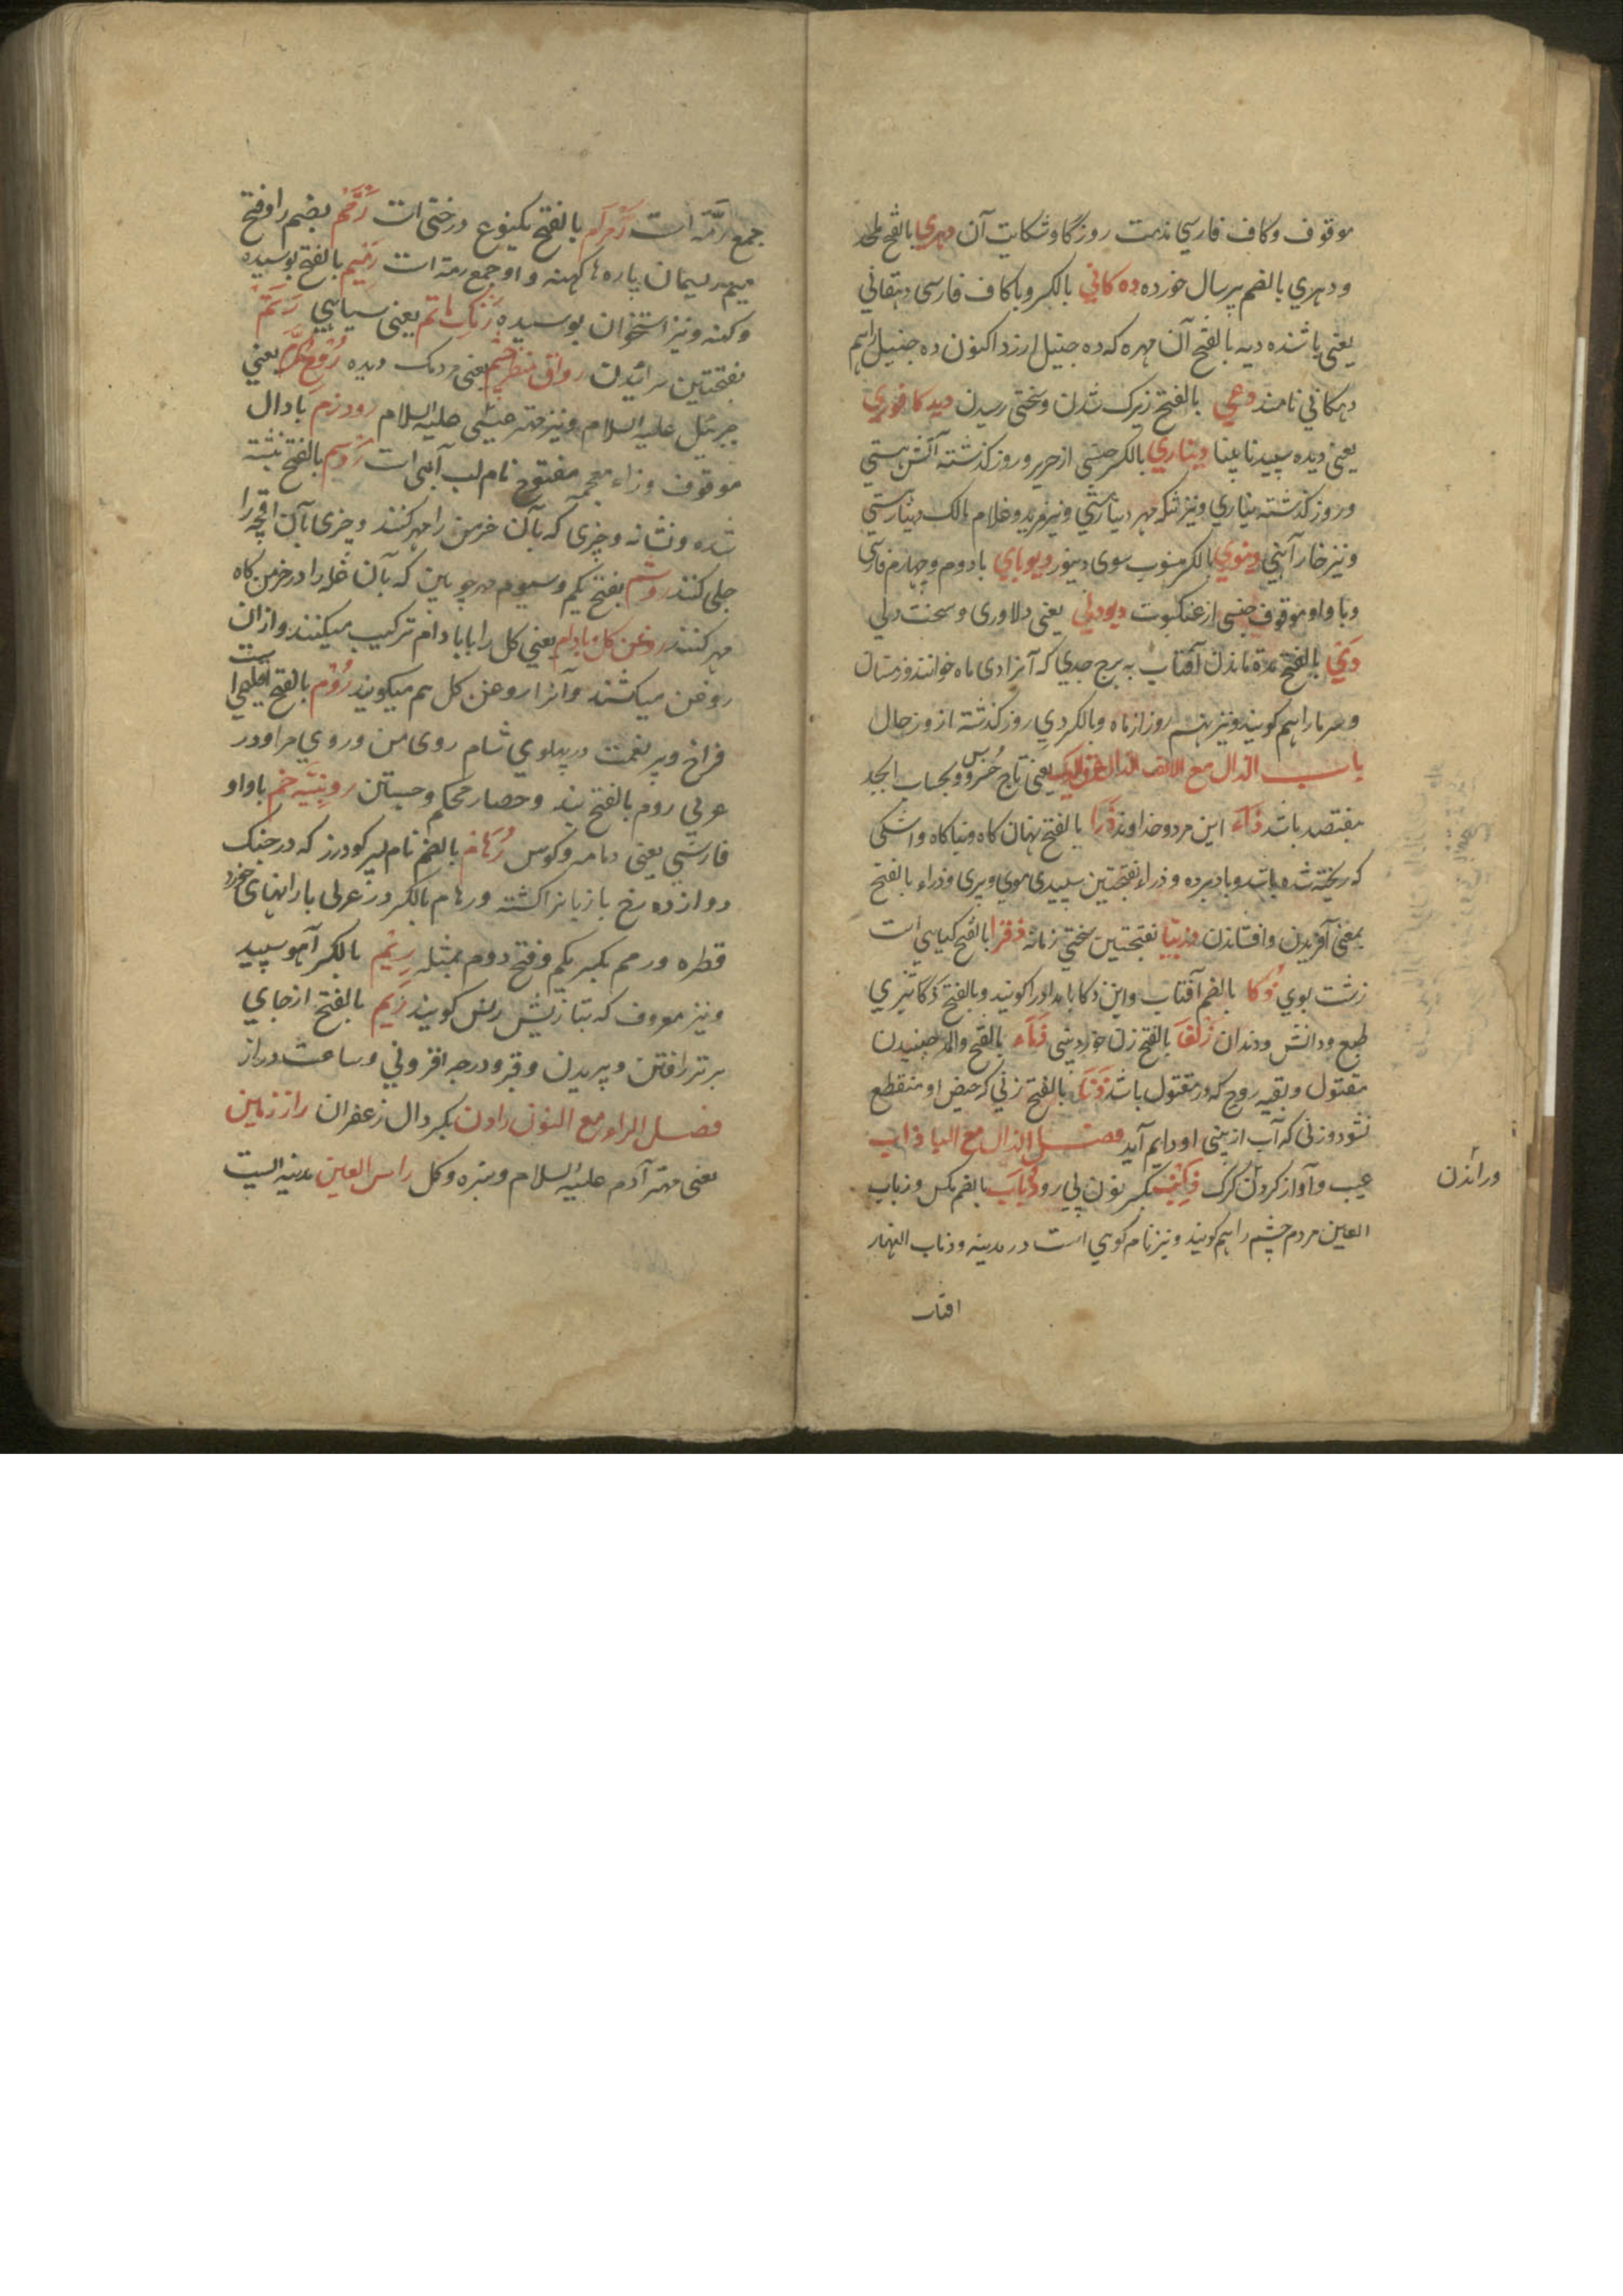 موقوف وكاف فارسي مذمت روزگار و شكايت آن دهري بالفتح ملحد
ودهري بالضم پير سال خورده ده كاني بالكسر وبا كاف فارسى دهقاني
يعنى باشنده ديه بالفتح آن مهره كه ده جنيل ارزد اكنون ده جنيل را هم
دهكاني نامند دهي بالفتح زيرك شدن وسختى رسيدن ديد كافوري
يعنى ديده سپيد نابينا ديناري بالكسر جنسى از حرير و روز كذشته
وروز كذشته ديناري ونيز تنكه مهر ونيز مريد وغلام مالك دينار
ونيز خار آهني دينوري بالكسر منسوب سوى دينور ديوباي با دوم وچهارم فارسى
وبا واو موقوف جنسى از عنكبوت ديودلي يعنى دلاورى وسخت دلي
دي بالفتح مدة ماندن آفتاب به برج جدي كه آنرا دى ماه خوانند وزمستان
وسرما را هم كويند ونيز نهم روز از ماه وبالكسر دي روز كذشته از روز حال
باب الذال مع الالف يعنى تاج خروس وبحساب ابجد
هفتصد باشد ذاء اين مرد وخداوند ذرا بالفتح نهان كاه وپناكاه واشكى
كه ريخته شده باشد وباد برده وذراء بفتحتين سپيدى موي وپيرى وذراء بالفتح
بمعنى آفريدن وافشاندن بفتحتين سختي زمانه ذفرا بالفتح كياهي است
زشت بوي ذكا بالضم آفتاب وابن ذكا بامداد را كويند وبالفتح ذكا تيزي
طبع ودانش ودندان ذلفا بالفتح زن خورد بينى ذماء بالفتح والمد جنبيدن
مقتول وبقيه روح كه در مقتول باشد ذنا بالفتح زني كه حيض او منقطع
نشود وزنى كه آب از بيني او دايم آيد فصل الذال مع البا ذاب
عيب وآواز كردن كرك بكسر نون پي رو ذباب بالضم مكس وذباب
العين مردم چشم را هم كويند ونيز نام كوهي است در مدينه وذباب النهار
افتاب
ورانذن
جمع رمّة است رمرام بالفتح يكنوع درختى است رمم بضم را وفتح
ميم ريسمان پاره ها كهنه واو جمع رمة است رميم بالفتح بوسيده
وكهنه ونيز استخوان بوسيده رنك ماتم يعنى سياهي رنم
بفتحتين سرائيدن رواق منظر چشم يعنى مردمك ديده روح مكرم يعني
جبرئيل عليه السلام ونيز مهتر عيسى عليه السلام رود زم با دال
موقوف وزاء معجمه مفتوح نام لب آبى است روسم بالفتح نبشته
شده ونشانه وچيزى كه بآن خرمن را مهر كنند وچيزى بآن اقچه را
جلى كنند روشم بفتح يكم وسيوم مهر چوبين كه بآن غله را در خرمن كاه
مهر كنند روغن كل بادام يعني كل را با بادام تركيب ميكنند وازان
روغن ميكشند وآنرا روغن كل هم ميكويند روم بالفتح اقليمي است
فراخ وپر نعمت در پهلوي شام روى من وروي مرا ودر
عربي روم بالفتح بند وحصار محكم وجستن رويينه خم با واو
فارسي يعنى دمامه وكوس رهام بالضم نام پسر كودرز كه در جنك
دوازده رخ بازيانرا كشته ورهام بالكسر در عربى بارانهاى خورد
قطره ورمم بكسر يكم وفتح دوم بمثله ريم بالكسر آهو سپيد
ونيز معروف كه بتازيش ريش كويند ريم بالفتح از جاي
برتر رافتن وپريدن وقبر ودرجه افزوني وساعت دراز
فصل الراء مع النون رادن بكسر دال زعفران راز زمين
يعنى مهتر آدم عليه السلام وسبزه وكل راس العين مدينه ايست